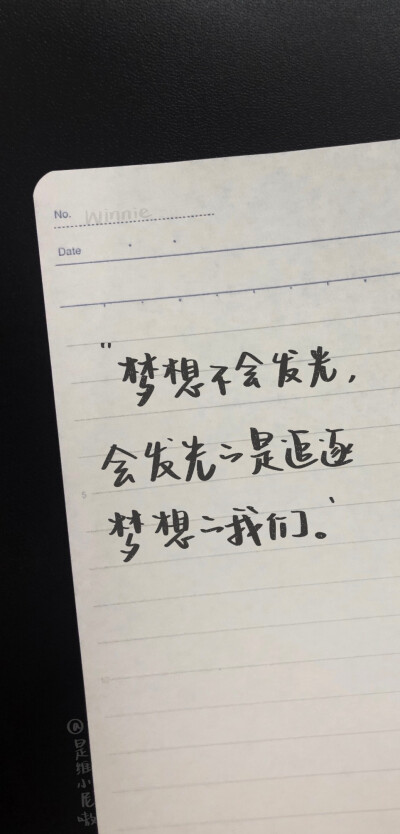 No. Winnie
Date
"梦想不会发光,
会发光的是追逐
梦想的我们。'
5
10